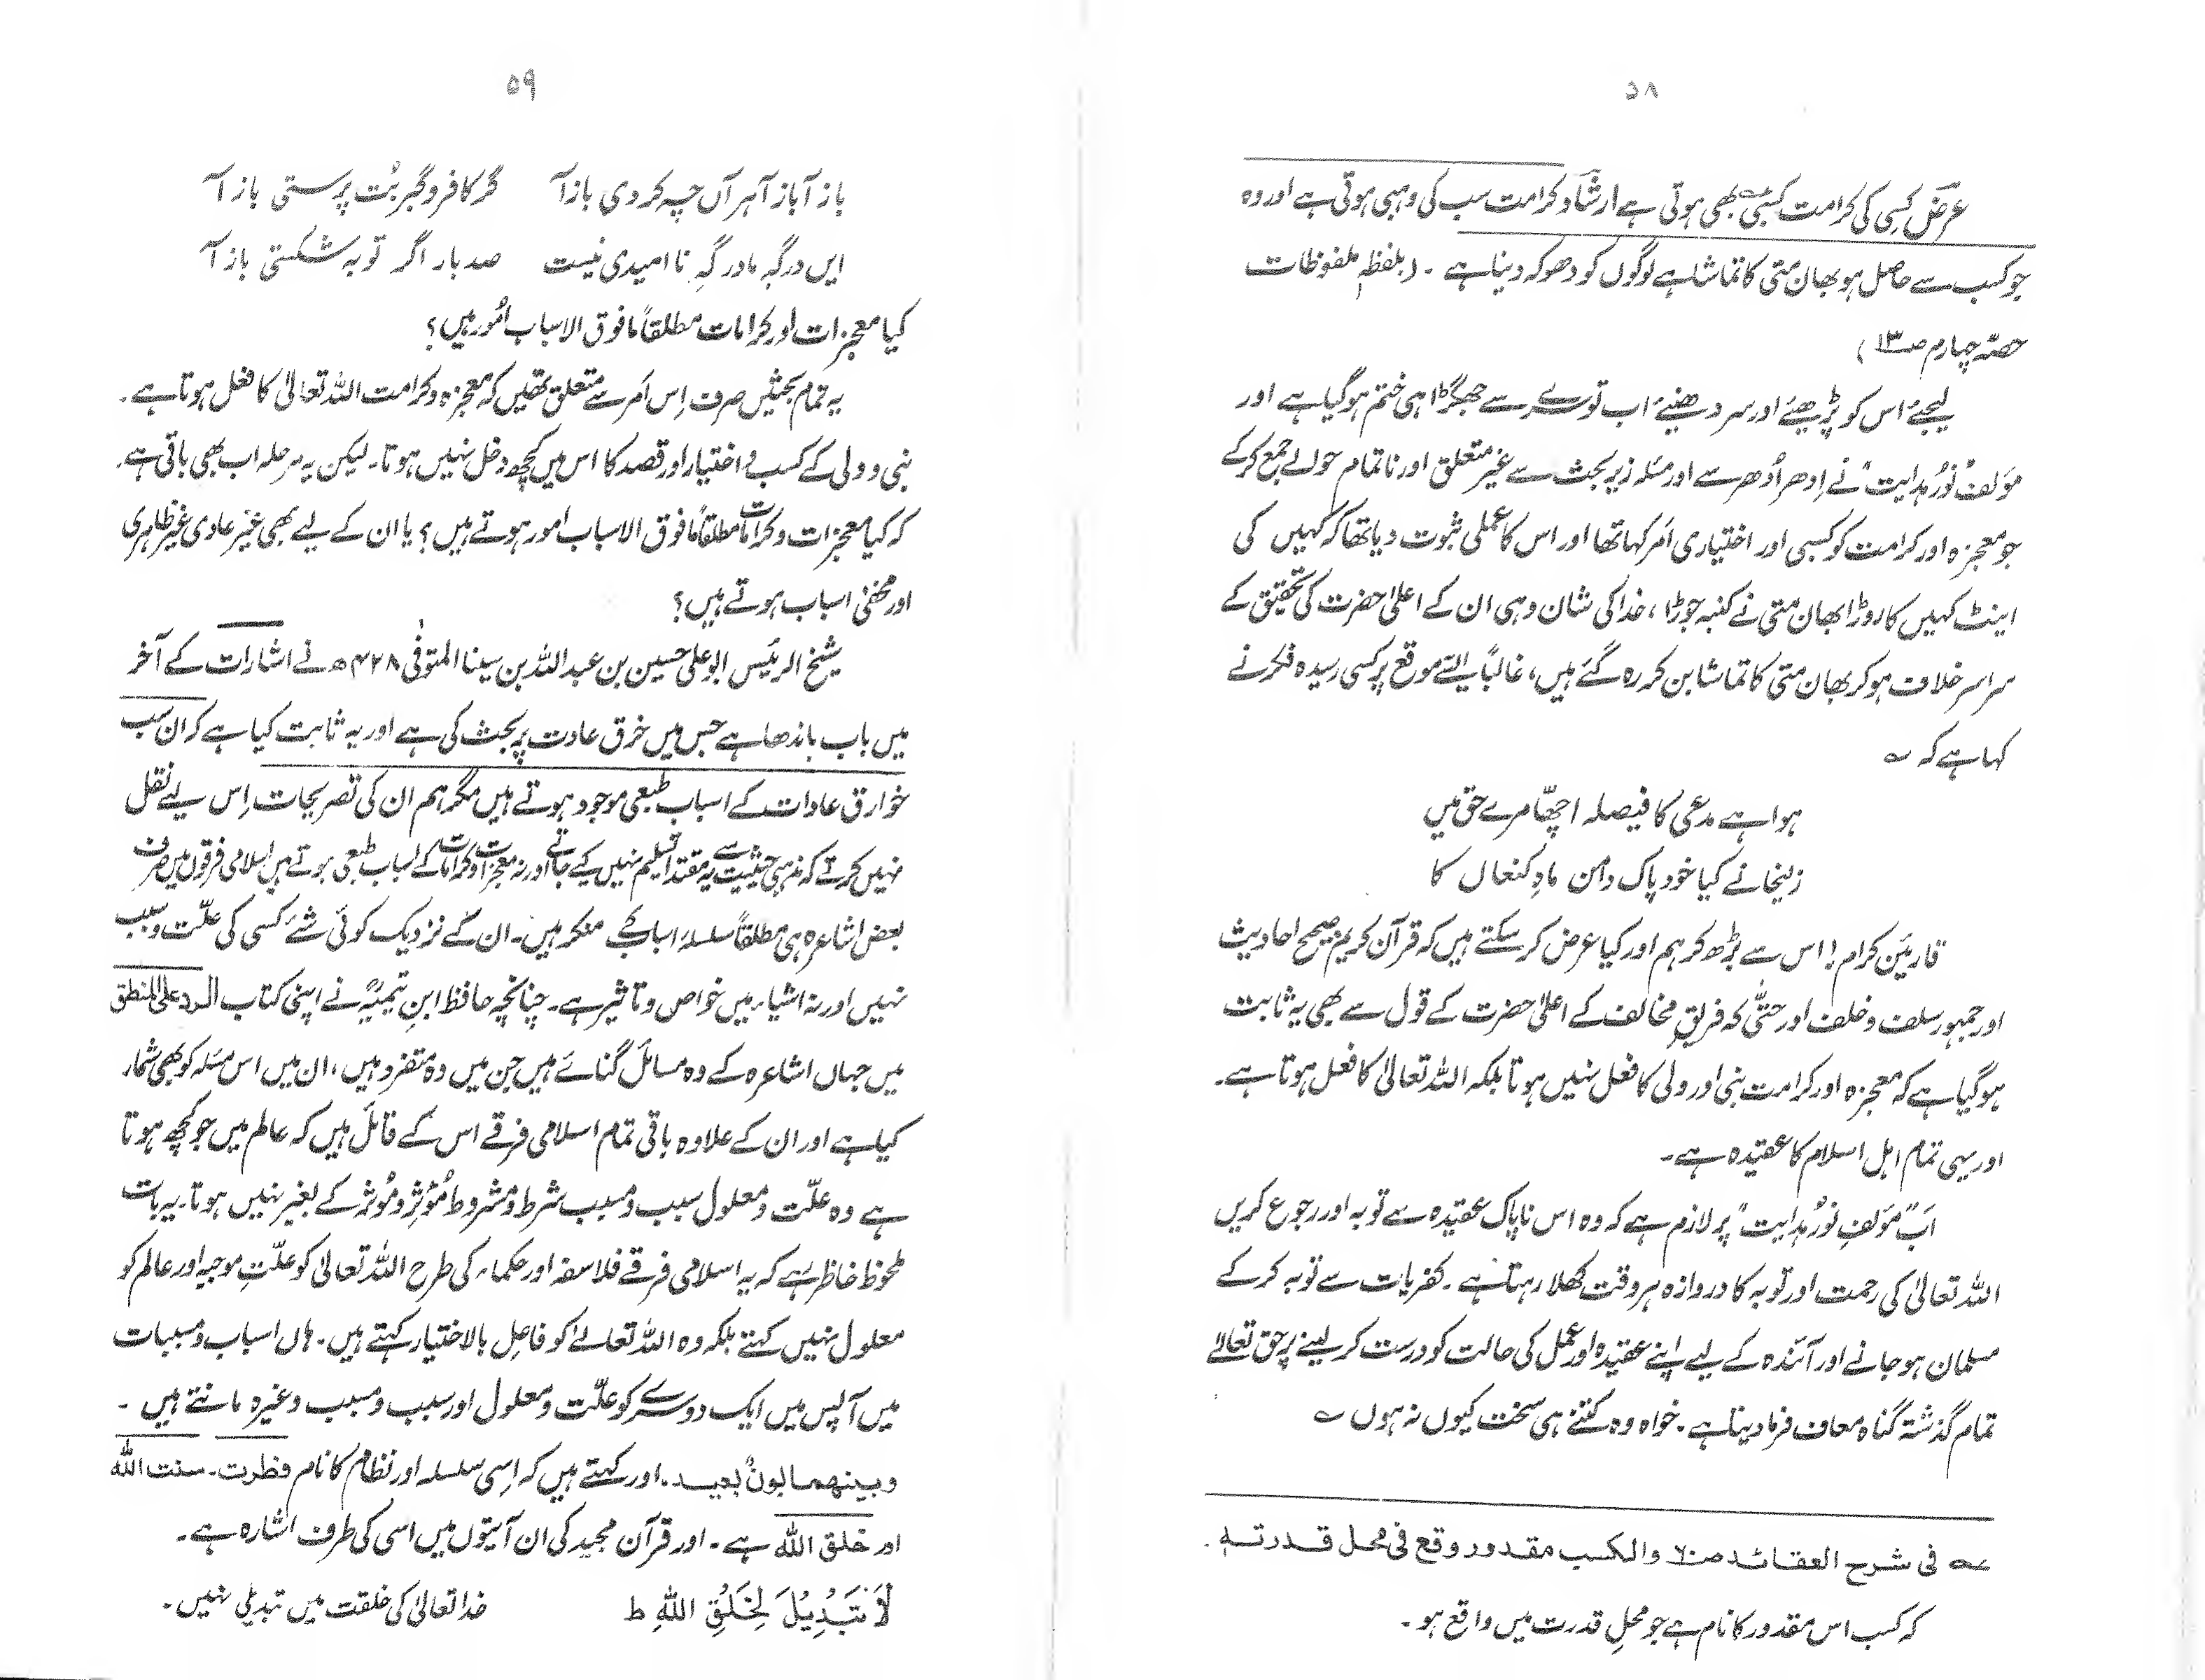 ۵۸
عرض کسی کی کرامت کسبی بھی ہوتی ہے ارشاد کرامت سب کی وہبی ہوتی ہے اور وہ
جو کسب سے حاصل ہو بھان متی کا تماشا ہے لوگوں کو دھوکہ دینا ہے ۔ (بلفظہٖ ملفوظات
حصّہ چہارم صـ۱۳)
لیجئے اس کو پڑھیئے اور سر دھنیئے اب تو سرے سے جھگڑا ہی ختم ہو گیا ہے اور
مؤلف "نُورُ ہدایت" نے اِدھر اُدھر سے اور مسئلہ زیر بحث سے غیر متعلق اور ناتمام حوالے جمع کر کے
جو معجزہ اور کرامت کو کسبی اور اختیاری اَمر کہا تھا اور اس کا عملی ثبوت دیا تھا کہ کہیں کی
اینٹ کہیں کا روڑا بھان متی نے کنبہ جوڑا ، خدا کی شان وہی ان کے اعلیٰ حضرت کی تحقیق کے
سراسر خلاف ہو کر بھان متی کا تماشا بن کر رہ گئے ہیں، غالباً ایسے موقع پر کسی رسیدہ فکر نے
کہا ہے کہ ؎
ہوا ہے مدعی کا فیصلہ اچھّا مرے حق میں
زلیخا نے کیا خود پاک دامن ماہِ کنعاں کا
قارئین کرام! اس سے بڑھ کر ہم اور کیا عرض کر سکتے ہیں کہ قرآن کریم صحیح احادیث
اور جمہور سلف و خلف اور حتّٰی کہ فریقِ مخالف کے اعلیٰ حضرت کے قول سے بھی یہ ثابت
ہو گیا ہے کہ معجزہ اور کرامت نبی اور ولی کا فعل نہیں ہوتا بلکہ اللہ تعالیٰ کا فعل ہوتا ہے۔
اور یہی تمام اہل اسلام کا عقیدہ ہے۔
اَب "مؤلفِ نُورُ ہدایت" پر لازم ہے کہ وہ اس ناپاک عقیدہ سے توبہ اور رجوع کریں
اللہ تعالیٰ کی رحمت اور توبہ کا دروازہ ہر وقت کھلا رہتا ہے ۔ کفریات سے توبہ کر کے
مسلمان ہو جانے اور آئندہ کے لیے اپنے عقیدہ اور عمل کی حالت کو درست کر لینے پر حق تعالےٰ
تمام گذشتہ گناہ معاف فرما دیتا ہے ۔ خواہ وہ کتنے ہی سخت کیوں نہ ہوں ؎
؎ فی شرح العقائد صـ۶۰ والکسب مقدور وقع فی محل قدرتہ ۔
کہ کسب اس مقدور کا نام ہے جو محلِ قدرت میں واقع ہو ۔
۵۹
باز آ باز آ ہر آں چہ کردی باز آ گر کافر و گبر و بُت پرستی باز آ
ایں درگہِ ما درگہِ نا امیدی نیست صد بار اگر توبہ شکستی باز آ
کیا معجزات اور کرامات مطلقاً مافوق الاسباب اُمور ہیں؟
یہ تمام بحثیں صرف اِس اَمر سے متعلق تھیں کہ معجزہ و کرامت اللہ تعالیٰ کا فعل ہوتا ہے۔
نبی و ولی کے کسب و اختیار اور قصد کا اس میں کچھ دخل نہیں ہوتا۔ لیکن یہ مرحلہ اب بھی باقی ہے۔
کہ کیا معجزات و کرامات مطلقاً مافوق الاسباب اُمور ہوتے ہیں؟ یا ان کے لیے بھی غیر عادی غیر ظاہری
اور مخفی اسباب ہوتے ہیں؟
شیخ الرئیس ابو علی حسین بن عبد اللہ بن سینا المتوفٰی ۴۲۸ھ نے اشارات کے آخر
میں باب باندھا ہے جس میں خرق عادت پر بحث کی ہے اور یہ ثابت کیا ہے کہ ان سب
خوارق عادات کے اسباب طبعی موجود ہوتے ہیں مگر ہم ان کی تصریحات اِس لیے نقل
نہیں کرتے کہ مذہبی حیثیت سے یہ مقتدا تسلیم نہیں کیے جاتے اور نہ معجزات و کرامات کے اسباب طبعی ہوتے ہیں اسلامی فرقوں میں صرف
بعض اشاعرہ ہی مطلقاً سلسلۂ اسباب کے منکر ہیں۔ ان کے نزدیک کوئی شئے کسی کی علّت و سبب
نہیں اور نہ اشیاء میں خواص و تاثیر ہے۔ چنانچہ حافظ ابنِ تیمیہؒ نے اپنی کتاب الرد علی المنطق
میں جہاں اشاعرہ کے وہ مسائل گنائے ہیں جن میں وہ متفرد ہیں، ان میں اس مسئلہ کو بھی شمار
کیا ہے اور ان کے علاوہ باقی تمام اسلامی فرقے اس کے قائل ہیں کہ عالم میں جو کچھ ہوتا
ہے وہ علّت و معلول سبب و مسبب شرط و مشروط مُؤثِّر و مُوثر کے بغیر نہیں ہوتا۔ یہ بات
ملحوظ خاطر رہے کہ یہ اسلامی فرقے فلاسفہ اور حکماء کی طرح اللہ تعالیٰ کو علّتِ موجبہ اور عالم کو
معلول نہیں کہتے بلکہ وہ اللہ تعالےٰ کو فاعلِ بالاختیار کہتے ہیں۔ ہاں اسباب و مسببات
میں آپس میں ایک دوسرے کو علّت و معلول اور سبب و مسبب وغیرہ مانتے ہیں ۔
وبینھما بونٌ بعید۔ اور کہتے ہیں کہ اِسی سلسلہ اور نظام کا نام فطرت۔ سنت اللہ
اور خلق اللہ ہے ۔ اور قرآن مجید کی ان آیتوں میں اسی کی طرف اشارہ ہے۔
لَا تَبْدِیْلَ لِخَلْقِ اللّٰہِ ط خدا تعالیٰ کی خلقت میں تبدیلی نہیں۔